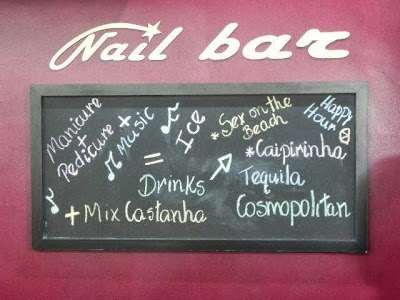 Nail bar
Manicure
+
Pedicure +
Music
=
Ice
Drinks
+ Mix Castanha
*Sex on the
Beach
*Caipirinha
Tequila
Cosmopolitan
Happy
Hour